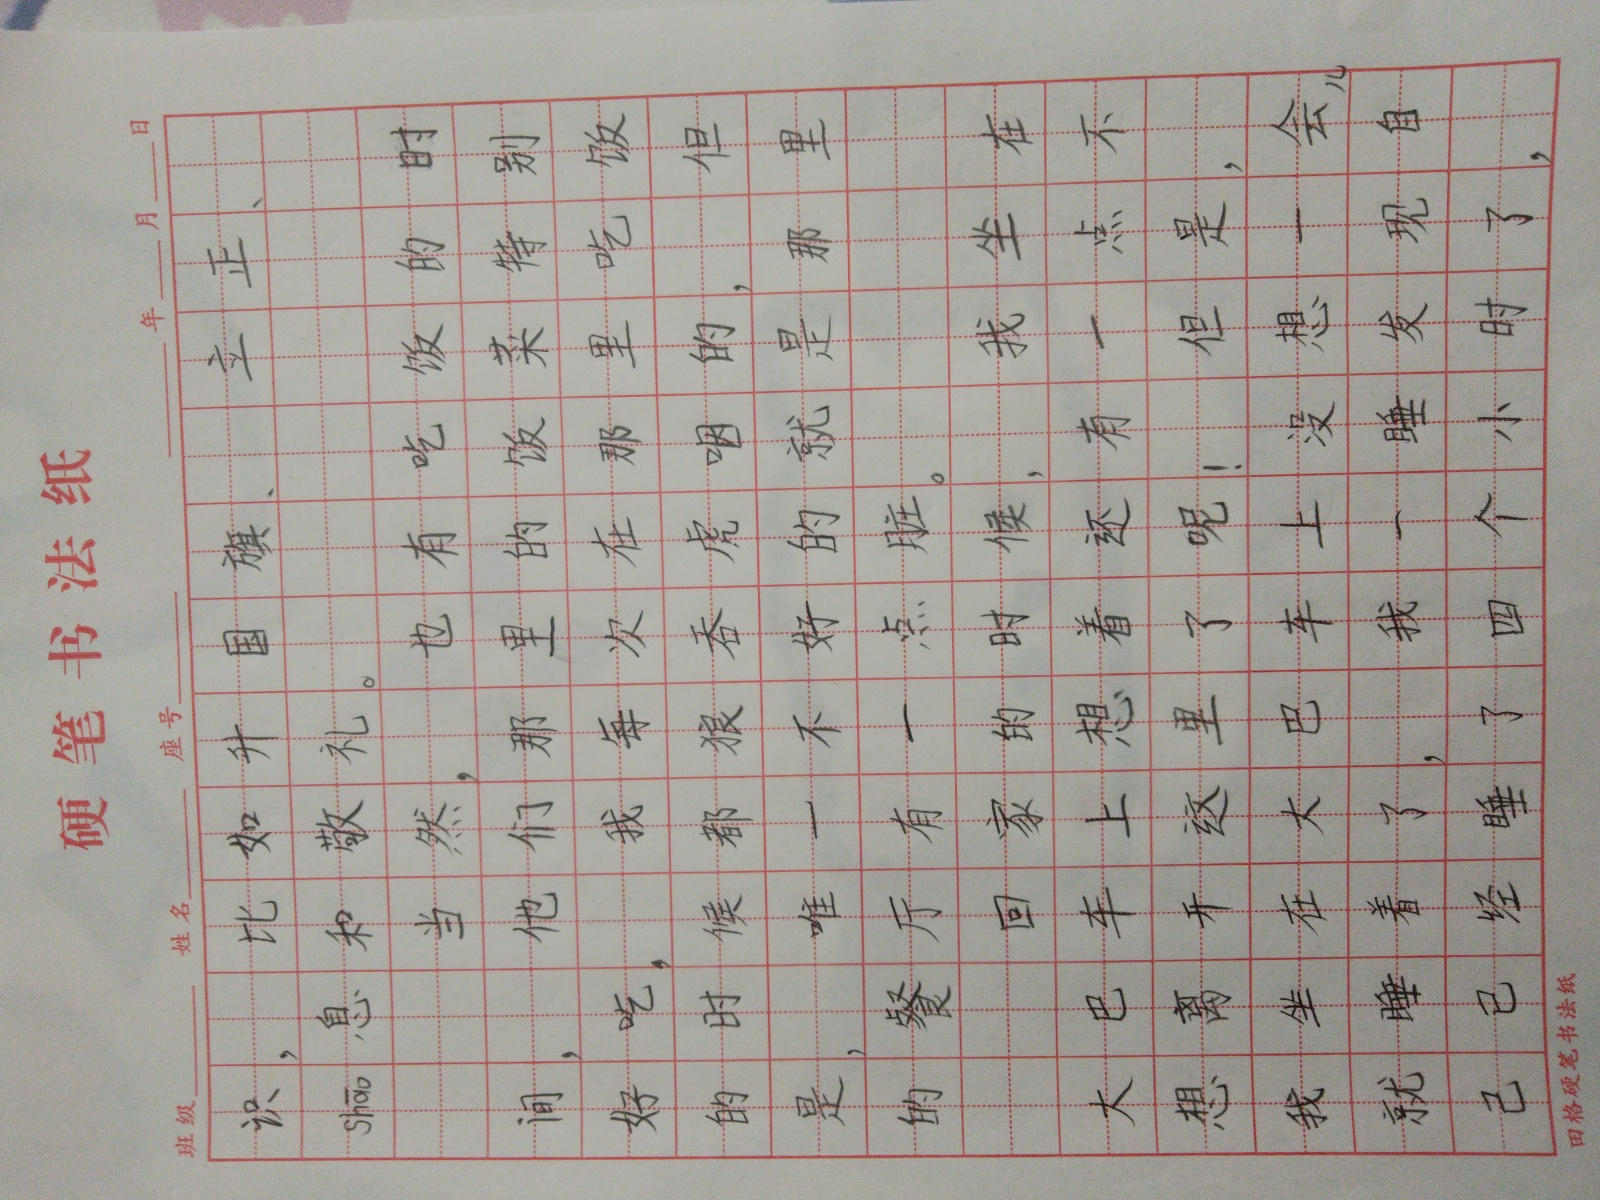 硬笔书法纸
班级 姓名 座号 年 月 日
识，比如升国旗、立正、
shāo息和敬礼。
当然，也有吃饭的时
间，他们那里的饭菜特别
好吃，我每次在那里吃饭
的时候都狼吞虎咽的，但
是，唯一不好的就是那里
的餐厅有一点脏。
回家的时候，我坐在
大巴车上想着还有一点不
想离开这里了呢！但是，
我坐在大巴车上没想一会儿
就睡着了，我一睡发现自
己已经睡了四个小时了，
田格硬笔书法纸